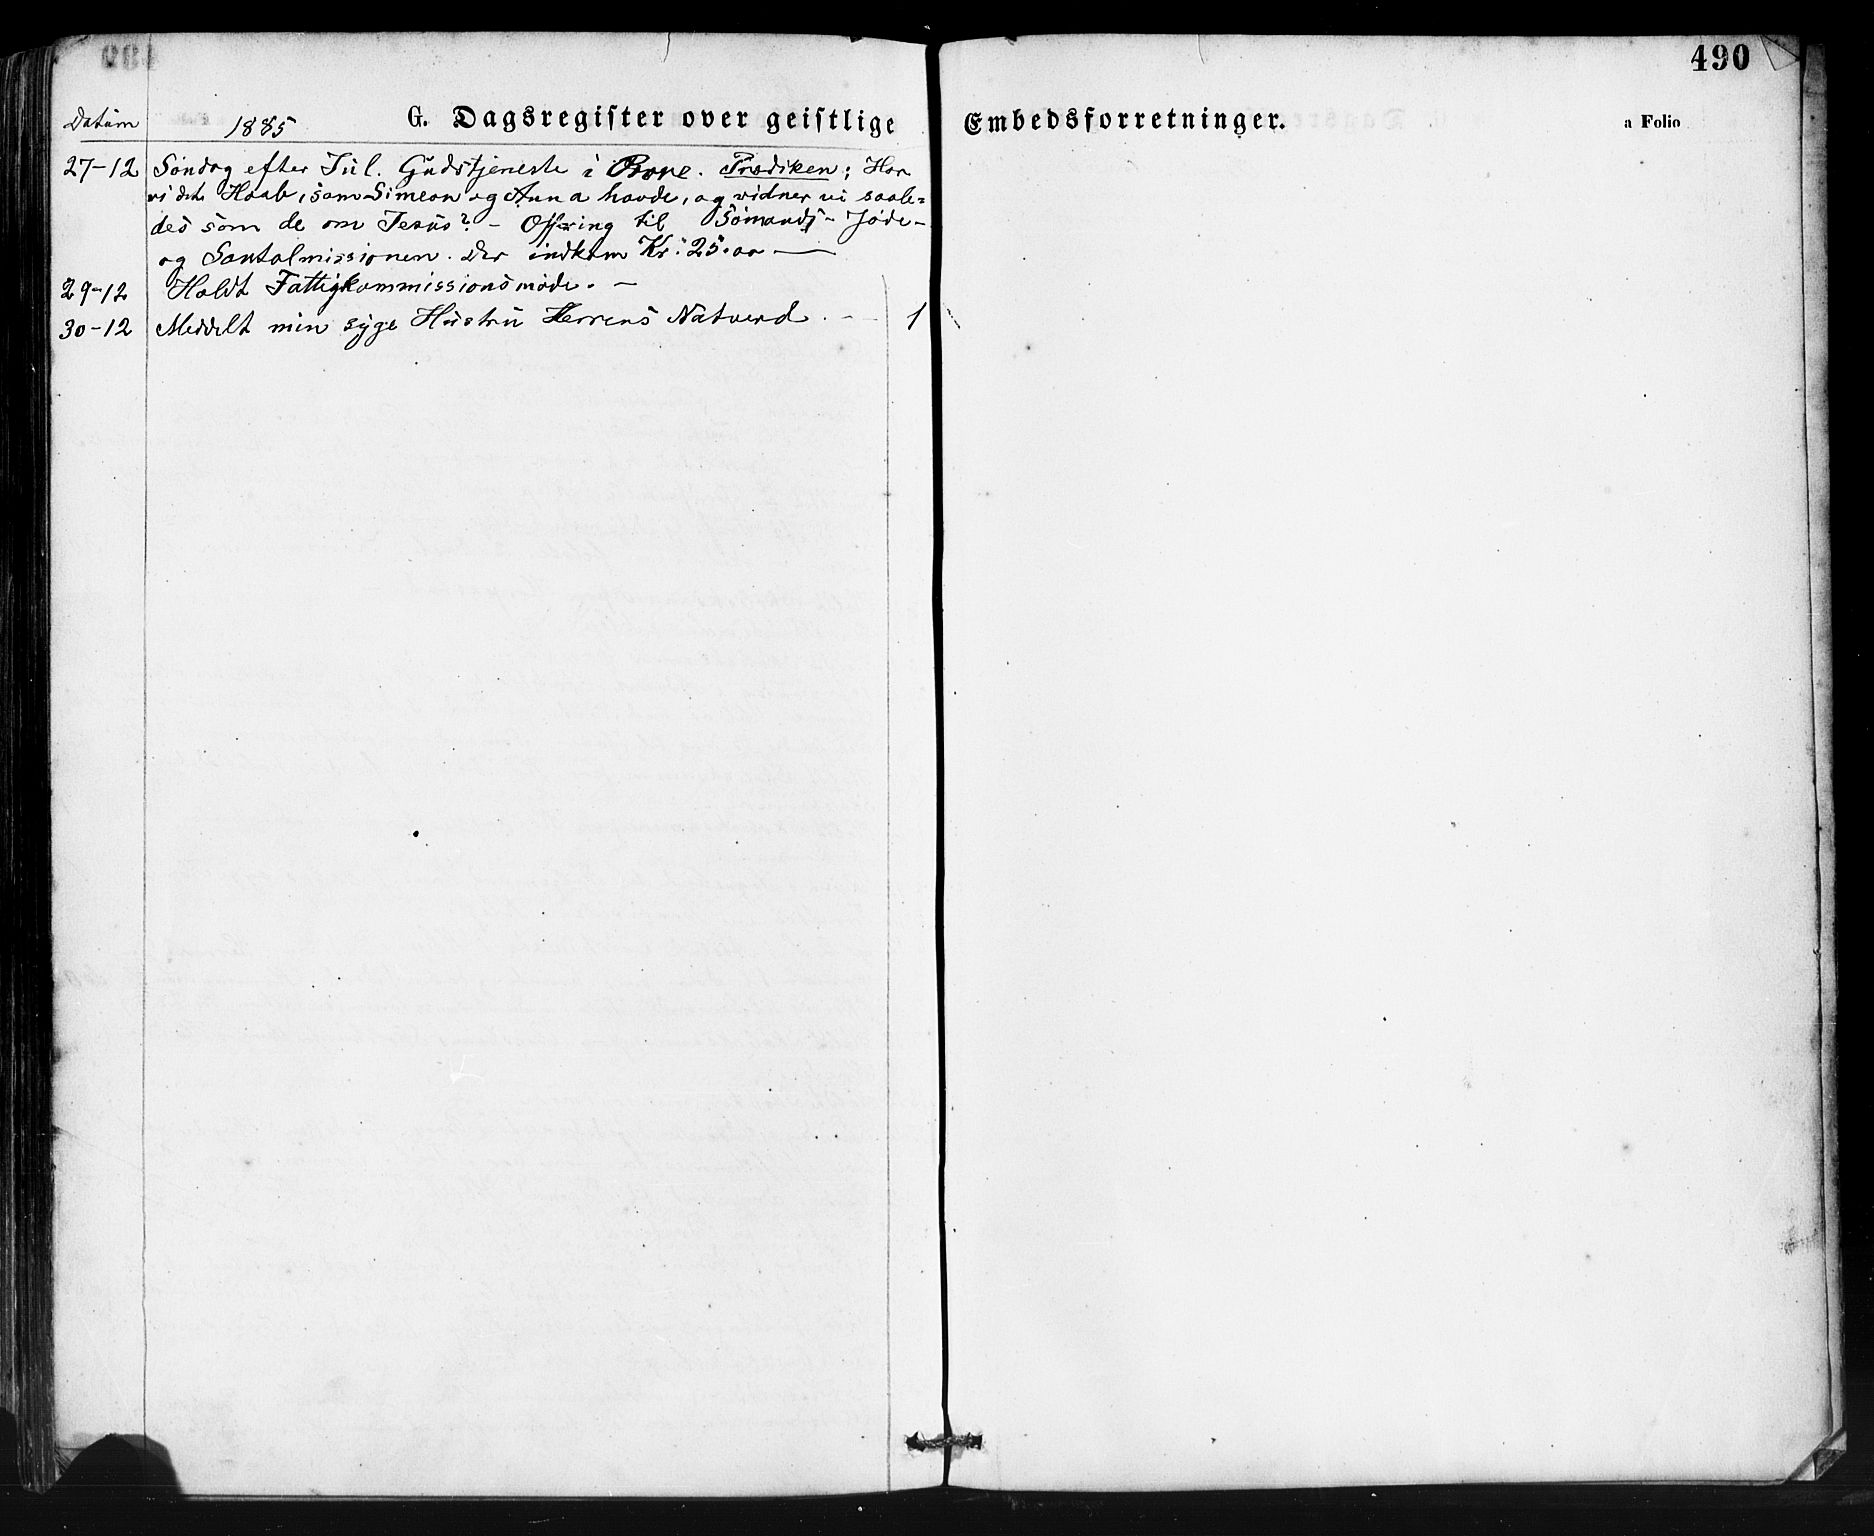 490
Datum 1885 G. Dagsregister over geistlige Embedsforretninger. a Folio
27-12 Søndag efter Jul. Gudstjeneste i . Prædiken: Har
vi det Haab, som Simeon og Anna havde, og vidner vi saale=
des som de om Jesus? - Offring til Sømands- Jøde-
og Santalmissionen. Der indkom Kr: 25.00
29-12 Holdt Fattigkommissionsmøde. -
30-12 Meddelt min syge Hustru Herrens Natverd. - 1